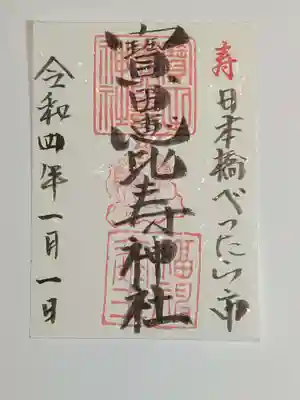 寿 日本橋べったら市
寳田恵比寿神社
令和四年一月一日